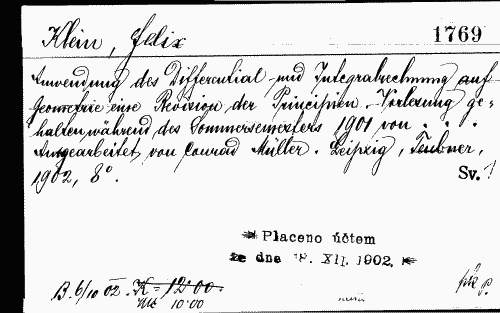 Klein, Felix
1769
Anwendung des Differential und Integralrechnung auf
Geometrie eine Revision der Principien. Vorlesung ge-
halten während des Sommersemesters 1901 von . . .
Ausgearbeitet von Conrad Müller. Leipzig, Teubner,
1902, 8°.
Sv. 1
Placeno účtem
ze dne XII. 1902.
B. 6/10 02. K - 12·00.
10·00